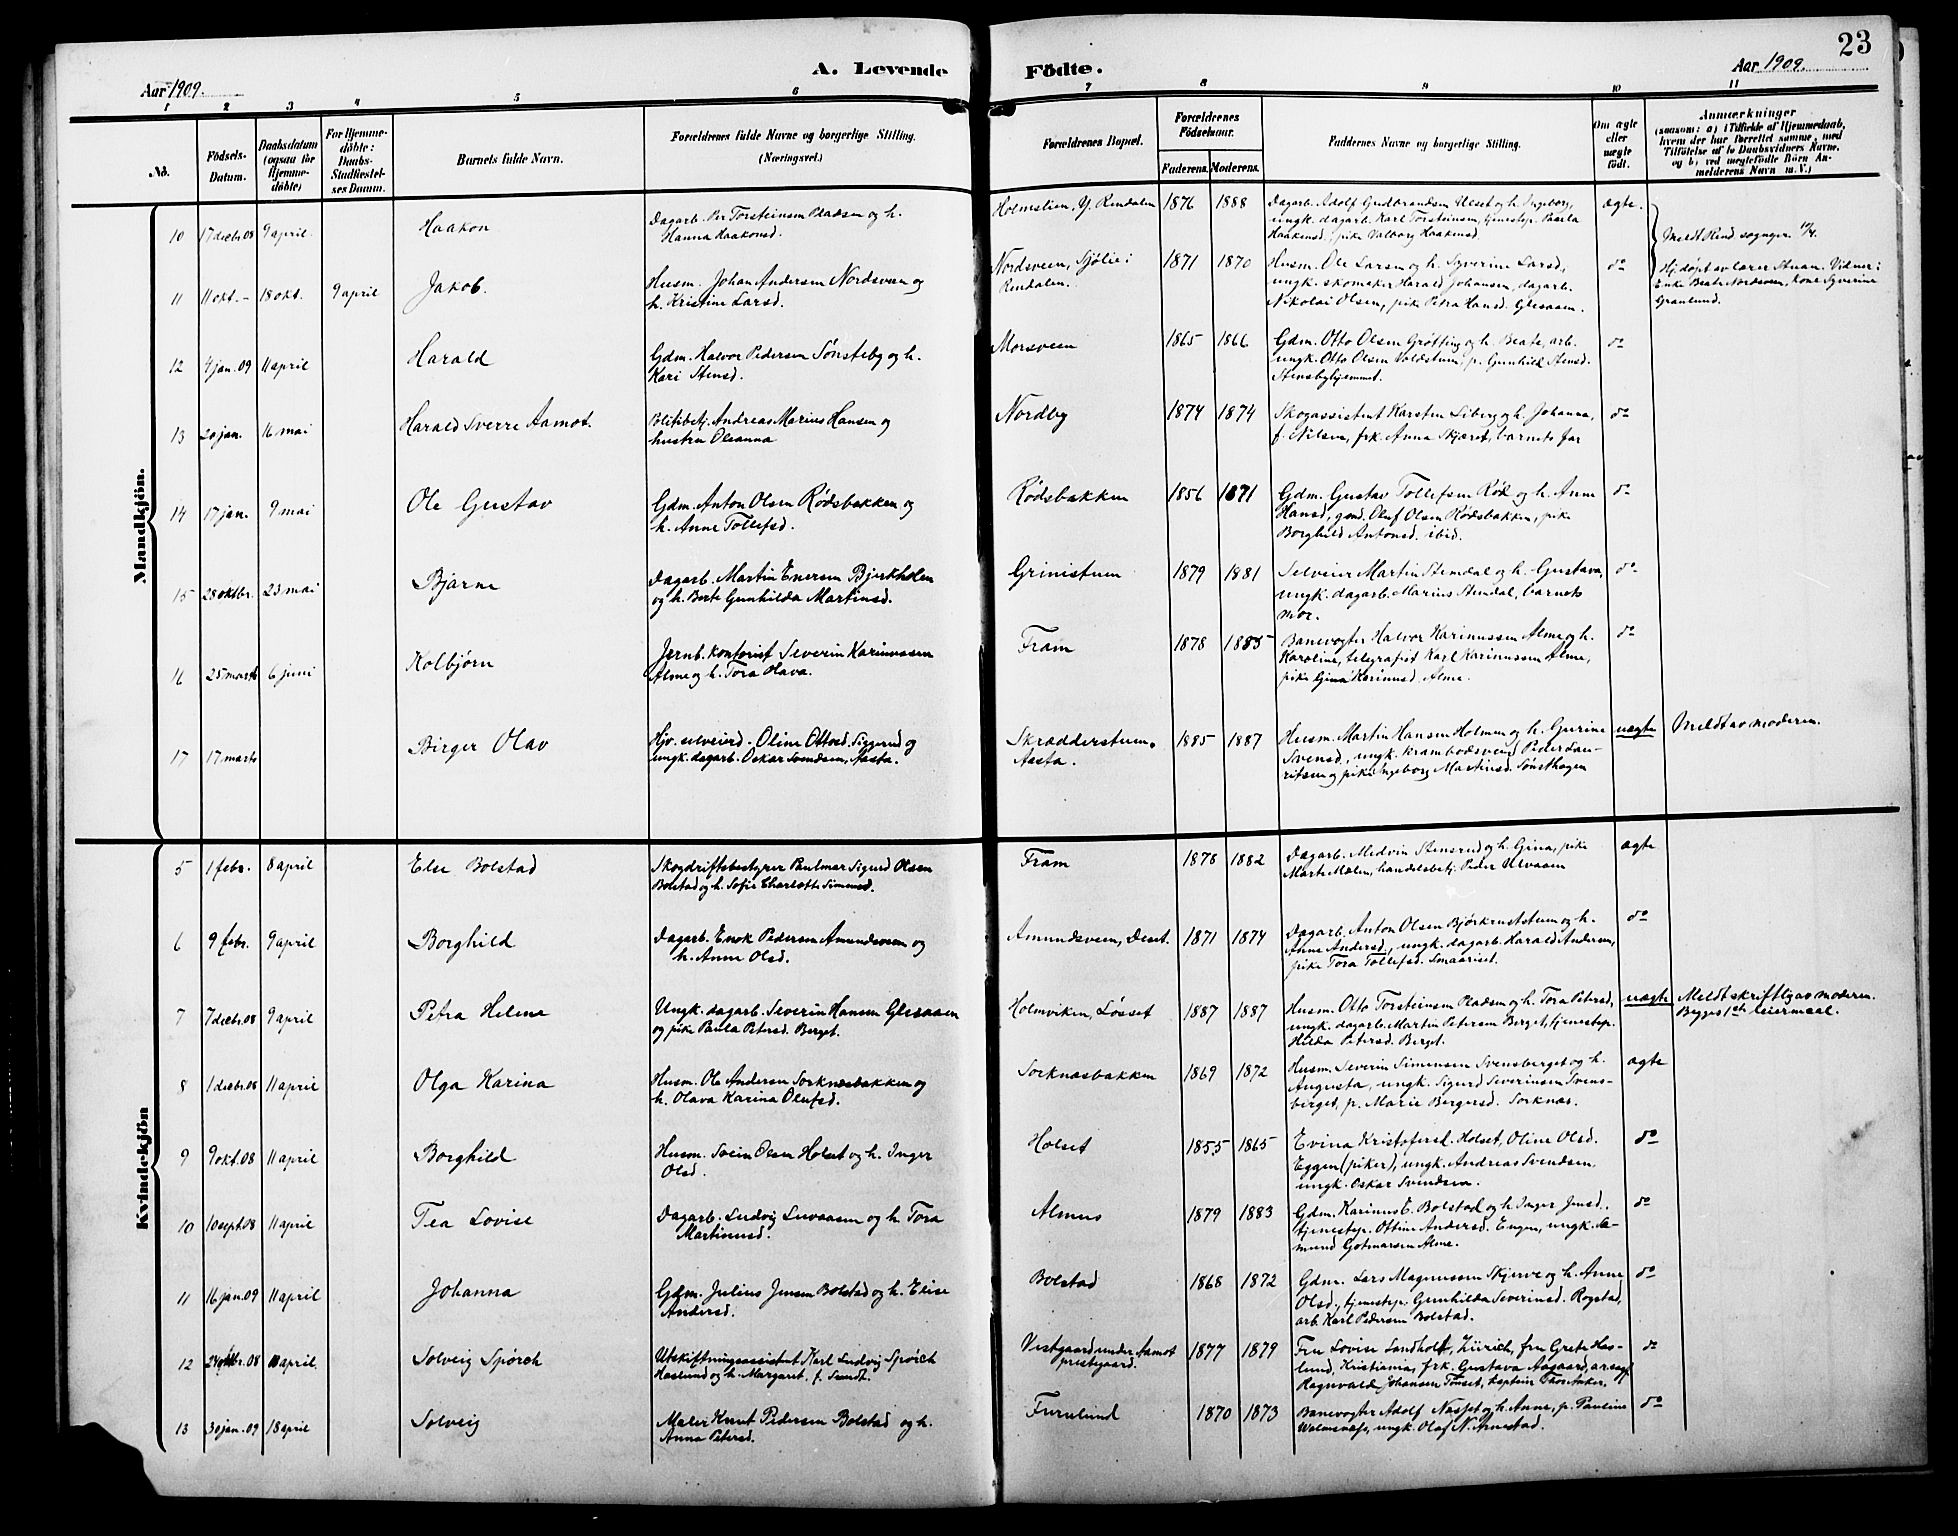 23
A. Levende Födte.
Aar 1909.
Aar 1909.
1 2 3 4 5 6 7 8 9 10 11
No.
Födsels-
Datum.
Daabsdatum
(ogsaa for
Hjemme-
döbte)
For Hjemme-
döbte:
Daabs-
Stadfæstel-
ses Datum.
Barnets fulde Navn.
Forældrenes fulde Navne og borgerlige Stilling.
(Næringsvei.)
Forældrenes Bopæl.
Forældrenes
Födselsaar.
Faderens. Moderens.
Faddernes Navne og borgerlige Stilling.
Om ægte
eller
uægte
födt.
Anmærkninger
(saasom: a) i Tilfælde af Hjemmedaab,
hvem der har forrettet samme, med
Tilföielse af to Daabsvidners Navne,
og b) ved uægtefödte Börn An-
melderens Navn m. V.)
Mandkjön.
10 17 decbr. 08 9 april. Haakon
Dagarb. Per Torsteinsen Pladsen og h.
Hanna Haakonsd.
Holmslien, Y. Rendalen 1876 1888
Dagarb. Adolf Gudbrandsen Ulset og h. Ingeborg,
ungk. dagarb. Karl Torsteinsen, tjenestep. Paula
Haakensd., pike Valborg Haakensd.
ægte.
Meldt Rend. sogneprest 17/4.
11 11 okt. - 18 okt. 9 april Jakob.
Husm. Johan Andersen Nordsveen og
h. Kristine Larsd.
Nordsveen, Sjölie i
Rendalen. 1871 1870
Husm. Ole Larsen og h. Syverine Larsd,
ungk. skomaker Harald Johansen, dagarb.
Nikolai Olsen, pike Petra Hansd. Glesaasen.
do
Hj. døpt av lærer Aaan. Vidner:
Enke Beate Nordsveen, kone Syverine
Granlund.
12 4 jan. 09 11 april Harald
Gdm. Halvor Pedersen Sønsteby og h.
Kari Stensd.
Morsveen 1865 1866
Gdm. Otto Olsen Grötting og h. Beate, arb.
ungk. Otto Olsen Voldstum, p. Gunhild Stensd.
Stensbyhjemmet.
do
13 20 jan. 16 mai Harald Sverre Aamot.
Politibetj. Andreas Marius Hansen og
hustru Oleanna
Nordby 1874 1874
Skogassistent Karsten Siberg og h. Johanna,
f. Nilsen, frk. Anna Skjæret, barnets far
14 17 jan. 9 mai Ole Gustav
Gdm. Anton Olsen Rødsbakken og
h. Anne Tollefsd.
Rødsbakken 1856 1871
Gdm. Gustav Tollefsen Røk og h. Anne
Hansd., gmd. Oluf Olsen Rødsbakken, pike
Borghild Antonsd. ibid.
do
15 28 oktbr. 23 mai Bjarne
Dagarb. Martin Enersen Bjørkholen
og h. Berte Gunhilda Martinsd.
Grinistuen 1879 1881
Selveier Martin Stendal og h. Gustava,
ungk. dagarb. Marius Stendal, barnets
mor.
do
16 25 marts 6 juni Kolbjørn
Jernb. kontorist Severin Karinussen
Alme og h. Tora Olava.
Fram 1878 1885
Banevogter Halvor Karinussen Alme og h.
Karoline, telegrafist Karl Karinussen Alme,
pike Gina Karinusd. Alme.
do
17 17 marts Birger Olav
Hjv. selveierd. Oline Ottosd. Siggerud og
ungk. dagarb. Oskar Svendsen, Aasta.
Skrædderstuen,
Aasta. 1885 1887
Husm. Martin Hansen Holmen og h. Gurine
Svensd., ungk. krambodsvend Peder Lau-
ritsen og pike Ingeborg Martinsd. Sønsthagen
uægte
Meldt av moderen.
Kvindekjön
5 1 febr. 8 april Else Bolstad
Skogdriftsbestyrer Paulmar Sigurd Olsen
Bolstad og h. Sofie Charlotte Simensd.
Fram 1878 1882
Dagarb. Medvin Stensrud og h. Gina, pike
Marte Mælen, handelsbetj. Peder Ulvaasen
ægte
6 9 febr. 9 april Borghild
Dagarb. Enok Pedersen Amundsveen og
h. Anne Olsd.
Amundsveen, Deset. 1871 1874
Dagarb. Anton Olsen Bjørknesstuen og h.
Anne Andersd., ungk. dagarb. Harald Andersen,
pike Tora Tollefsd. Smaariset.
do
7 7 decbr. 08 9 april Petra Helene
Ungk. dagarb. Severin Hansen Glesaasen
og pike Paula Petersd. Berget.
Holmviken, Løsset 1887 1887
Husm. Otto Torsteinsen Pladsen og h. Tora Petersd,
ungk. dagarb. Martin Petersen Berget, tjenestep.
Hilda Petersd. Berget.
uægte
Meldt skriftlig av moderen.
Begges 1ste leiermaal.
8 1 decbr. 08 11 april Olga Karina
Husm. Ole Andersen Sorknæsbakken og
h. Olava Karina Olufsd.
Sorknæsbakken 1869 1872
Husm. Severin Simensen Svensberget og h.
Augusta, ungk. Sigurd Severinsen Svens-
berget, p. Marie Bergersd. Sorknæs.
ægte
9 9 okt. 08 11 april Borghild
Husm. Svein Olsen Holset og h. Inger
Olsd.
Holset 1855 1865
Evina Kristofersd. Holset, Oline Olsd.
Eggen (piker), ungk. Andreas Svendsen
ungk. Oskar Svendsen.
do
10 10 sept. 08 11 april Tea Lovise
Dagarb. Ludvig Luvaasen og h. Tora
Martinusd.
Almus 1879 1883
Gdm. Karinus E. Bolstad og h. Inger Jensd.,
tjenestep. Ottine Andersd. Engen, ungk. A-
mund Gotmarsen Alme.
do
11 16 jan. 09 11 april Johanna
Gdm. Julius Jensen Bolstad og h. Elise
Andersd.
Bolstad 1868 1872
Gdm. Lars Magnussen Skjerve og h. Anne
Olsd., tjenestep. Gunhilda Severinsd. Rogstad,
arb. Karl Pedersen Bolstad.
do
12 24 oktbr. 08 april. Solveig Spørck
Utskiftningsassistent Karl Ludvig Spørck
Haslund og h. Margaret, f. Sundt.
Vestgaard under Aamot
prestegaard. 1877 1879
Fru Lovise Sandholt, Zürich, fru Grete Has-
lund, Kristiania, frk. Gustava Aagaard,
Ragnvald Johansen Tønset, kaptein Thor Anker.
do
13 30 jan. 09 18 april Solveig
Maler Knut Pedersen Bolstad og h.
Anna Petersd.
Furulund 1870 1873
Banevogter Adolf Næsset og h. Anne, p. Pauline
ungk. Olaf N. Arnestad.
do